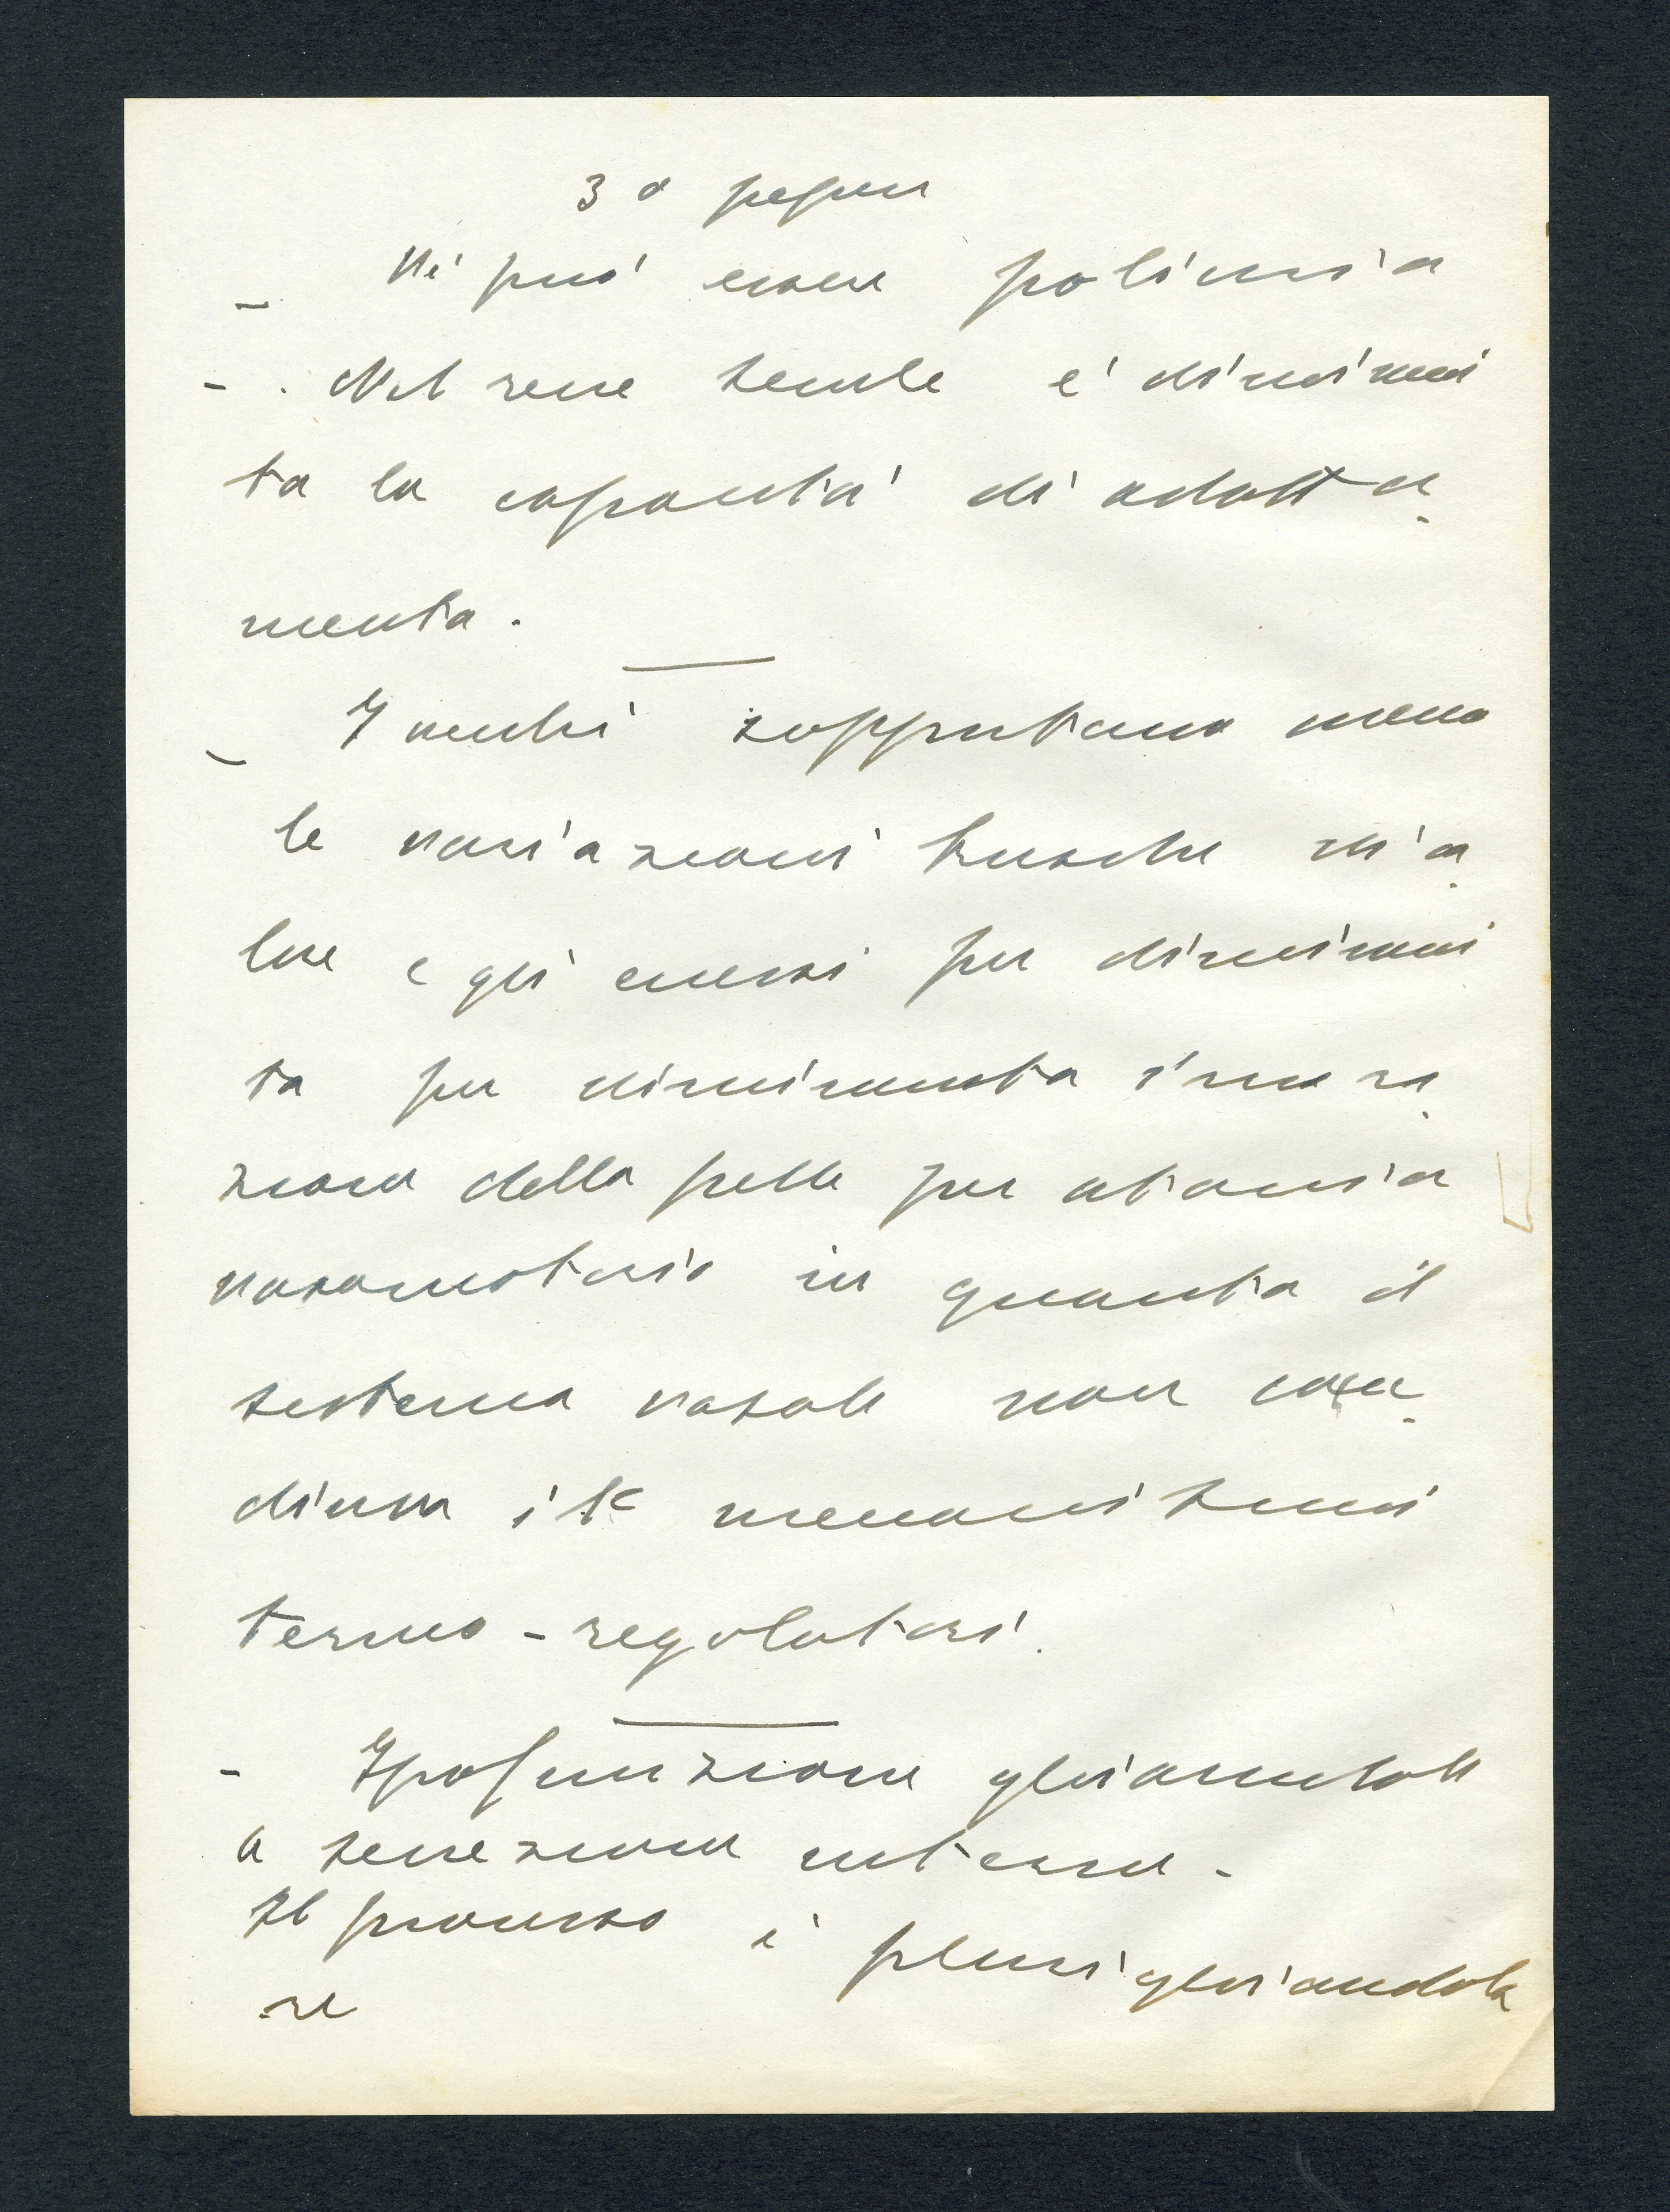 3ª
- Vi può essere poliuria
- . Nel rene senile è diminui
ta la capacità di adatta
mento.
- I vecchi sopportano meno
le variazioni brusche di ca
lore e gli eccessi per diminui
ta per diminuita
zione della pelle per atonia
vasomotoria in quanto il
sistema vasale non
i meccanismi
termo-regolatori.
- Ipofunzione ghiandole
a secrezione interna -
Il processo è plurighiandola
re